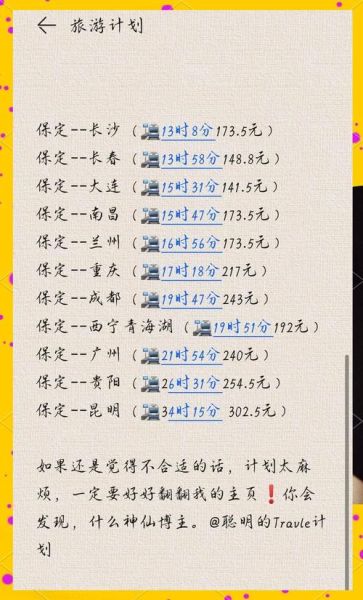 ← 旅游计划
保定--长沙（🚈13时8分173.5元）
保定--长春（🚈13时58分148.8元）
保定--大连（🚈15时31分141.5元）
保定--南昌（🚈15时47分173.5元）
保定--兰州（🚈16时56分173.5元）
保定--重庆（🚈17时18分217元）
保定--成都（🚈19时47分243元）
保定--西宁青海湖（🚈19时51分192元）
保定--广州（🚈21时54分240元）
保定--贵阳（🚈26时31分254.5元）
保定--昆明（🚈34时15分 302.5元）
如果还是觉得不合适的话，计划太麻
烦，一定要好好翻翻我的主页❗你会
发现，什么神仙博主。@聪明的Travle计
划